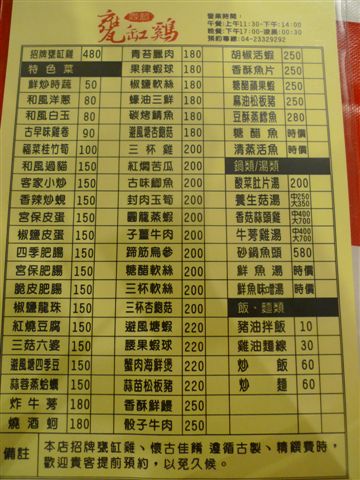 甕缸鷄
營業時間:
午餐:上午11:30-下午14:00
晚餐:下午17:00-凌晨00:30
預約專線:04-23292292
招牌甕缸雞 480
特色菜
鮮炒時蔬 50
和風洋蔥 80
和風白玉 80
古早味雞卷 90
福菜桂竹筍 100
和風過貓 150
客家小炒 150
香辣炒蜆 150
宮保皮蛋 150
椒鹽皮蛋 150
四季肥腸 150
宮保肥腸 150
脆皮肥腸 150
椒鹽龍珠 150
紅燒豆腐 150
三菇六婆 150
避風塘四季豆 150
蒜蓉蒸蛤蠣 150
炸牛蒡 180
燒酒蚵 180
青蒜臘肉 180
果律蝦球 180
椒鹽軟絲 180
蠔油三鮮 180
碳烤鯖魚 180
避風塘杏鮑菇 180
三杯雞 200
紅燜苦瓜 200
古味鯽魚 200
封肉玉筍 200
圓籠蒸蝦 200
子薑牛肉 200
蹄筋烏參 200
糖醋軟絲 200
三杯軟絲 200
三杯杏鮑菇 200
避風塘蝦 220
腰果蝦球 220
蟹肉海鮮煲 220
蒜苗松板豬 220
香酥鮮鰻 250
骰子牛肉 250
胡椒活蝦 250
香酥魚片 250
糖醋蘋果蝦 250
麻油松板豬 250
豆酥蒸鱈魚 280
糖醋魚 時價
清蒸活魚 時價
鍋類/湯類
酸菜肚片湯 200
養生菇湯 中250 大350
香菇蒜頭雞 中400 大700
牛蒡雞湯 中400 大700
砂鍋魚頭 580
鮮魚湯 時價
鮮魚味噌湯 時價
飯、麵類
豬油拌飯 10
雞油麵線 30
炒飯 60
炒麵 60
備註
本店招牌甕缸雞、懷古佳餚 遵循古製、精饌費時,
歡迎貴客提前預約,以免久候。